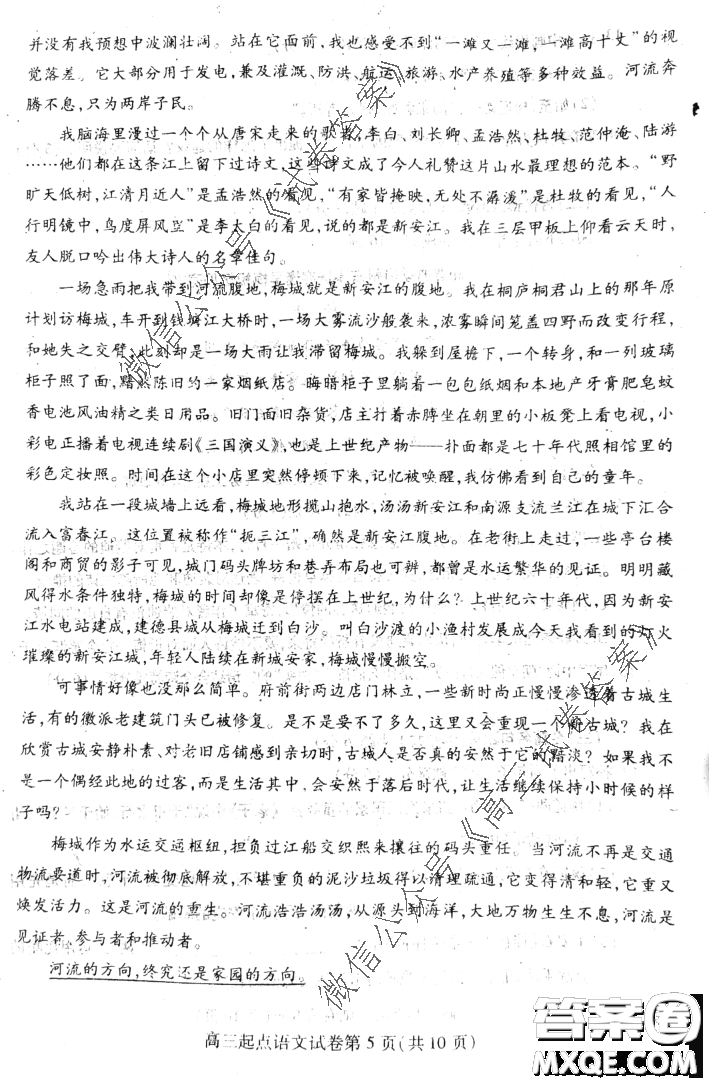 并没有我预想中波澜壮阔。站在它面前，我也感受不到“一滩又一滩，一滩高十丈”的视
觉落差。它大部分用于发电，兼及灌溉、防洪、航运、旅游、水产养殖等多种效益。河流奔
腾不息，只为两岸子民。
我脑海里漫过一个个从唐宋走来的歌者，李白、刘长卿、孟浩然、杜牧、范仲淹、陆游
……他们都在这条江上留下过诗文，这些诗文成了今人礼赞这片山水最理想的范本。“野
旷天低树，江清月近人”是孟浩然的看见，“有家皆掩映，无处不潺湲”是杜牧的看见，“人
行明镜中，鸟度屏风里”是李太白的看见，说的都是新安江。我在三层甲板上仰看云天时，
友人脱口吟出伟大诗人的名章佳句。
一场急雨把我带到河流腹地，梅城就是新安江的腹地。我在桐庐桐君山上的那年原
计划访梅城，车开到钱塘江大桥时，一场大雾流沙般袭来，浓雾瞬间笼盖四野而改变行程，
和她失之交臂，此刻却是一场大雨让我滞留梅城。我躲到屋檐下，一个转身，和一列玻璃
柜子照了面，黯然陈旧的一家烟纸店。晦暗柜子里躺着一包包纸烟和本地产牙膏肥皂蚊
香电池风油精之类日用品。旧门面旧杂货，店主打着赤膊坐在朝里的小板凳上看电视，小
彩电正播着电视连续剧《三国演义》，也是上世纪产物——扑面都是七十年代照相馆里的
彩色定妆照。时间在这个小店里突然停顿下来，记忆被唤醒，我仿佛看到自己的童年。
我站在一段城墙上远看，梅城地形揽山抱水，汤汤新安江和南源支流兰江在城下汇合
流入富春江。这位置被称作“扼三江”，确然是新安江腹地。在老街上走过，一些亭台楼
阁和商贸的影子可见，城门码头牌坊和巷弄布局也可辨，都曾是水运繁华的见证。明明藏
风得水条件独特，梅城的时间却像是停摆在上世纪，为什么？上世纪六十年代，因为新安
江水电站建成，建德县城从梅城迁到白沙。叫白沙渡的小渔村发展成今天我看到的灯火
璀璨的新安江城，年轻人陆续在新城安家，梅城慢慢搬空。
可事情好像也没那么简单。府前街两边店门林立，一些新时尚正慢慢渗透着古城生
活，有的徽派老建筑门头已被修复。是不是要不了多久，这里又会重现一个新古城？我在
欣赏古城安静朴素、对老旧店铺感到亲切时，古城人是否真的安然于它的黯淡？如果我不
是一个偶经此地的过客，而是生活其中，会安然于落后时代，让生活继续保持小时候的样
子吗？
梅城作为水运交通枢纽，担负过江船交织熙来攘往的码头重任。当河流不再是交通
物流要道时，河流被彻底解放，不堪重负的泥沙垃圾得以清理疏通，它变得清和轻，它重又
焕发活力。这是河流的重生。河流浩浩汤汤，从源头到海洋，大地万物生生不息，河流是
见证者，参与者和推动者。
河流的方向，终究还是家园的方向。
高三起点语文试卷第 5 页（共 10 页）
微信公众号《试卷答案》
微信公众号《高三试卷答案》
答案圈
MXQE.COM